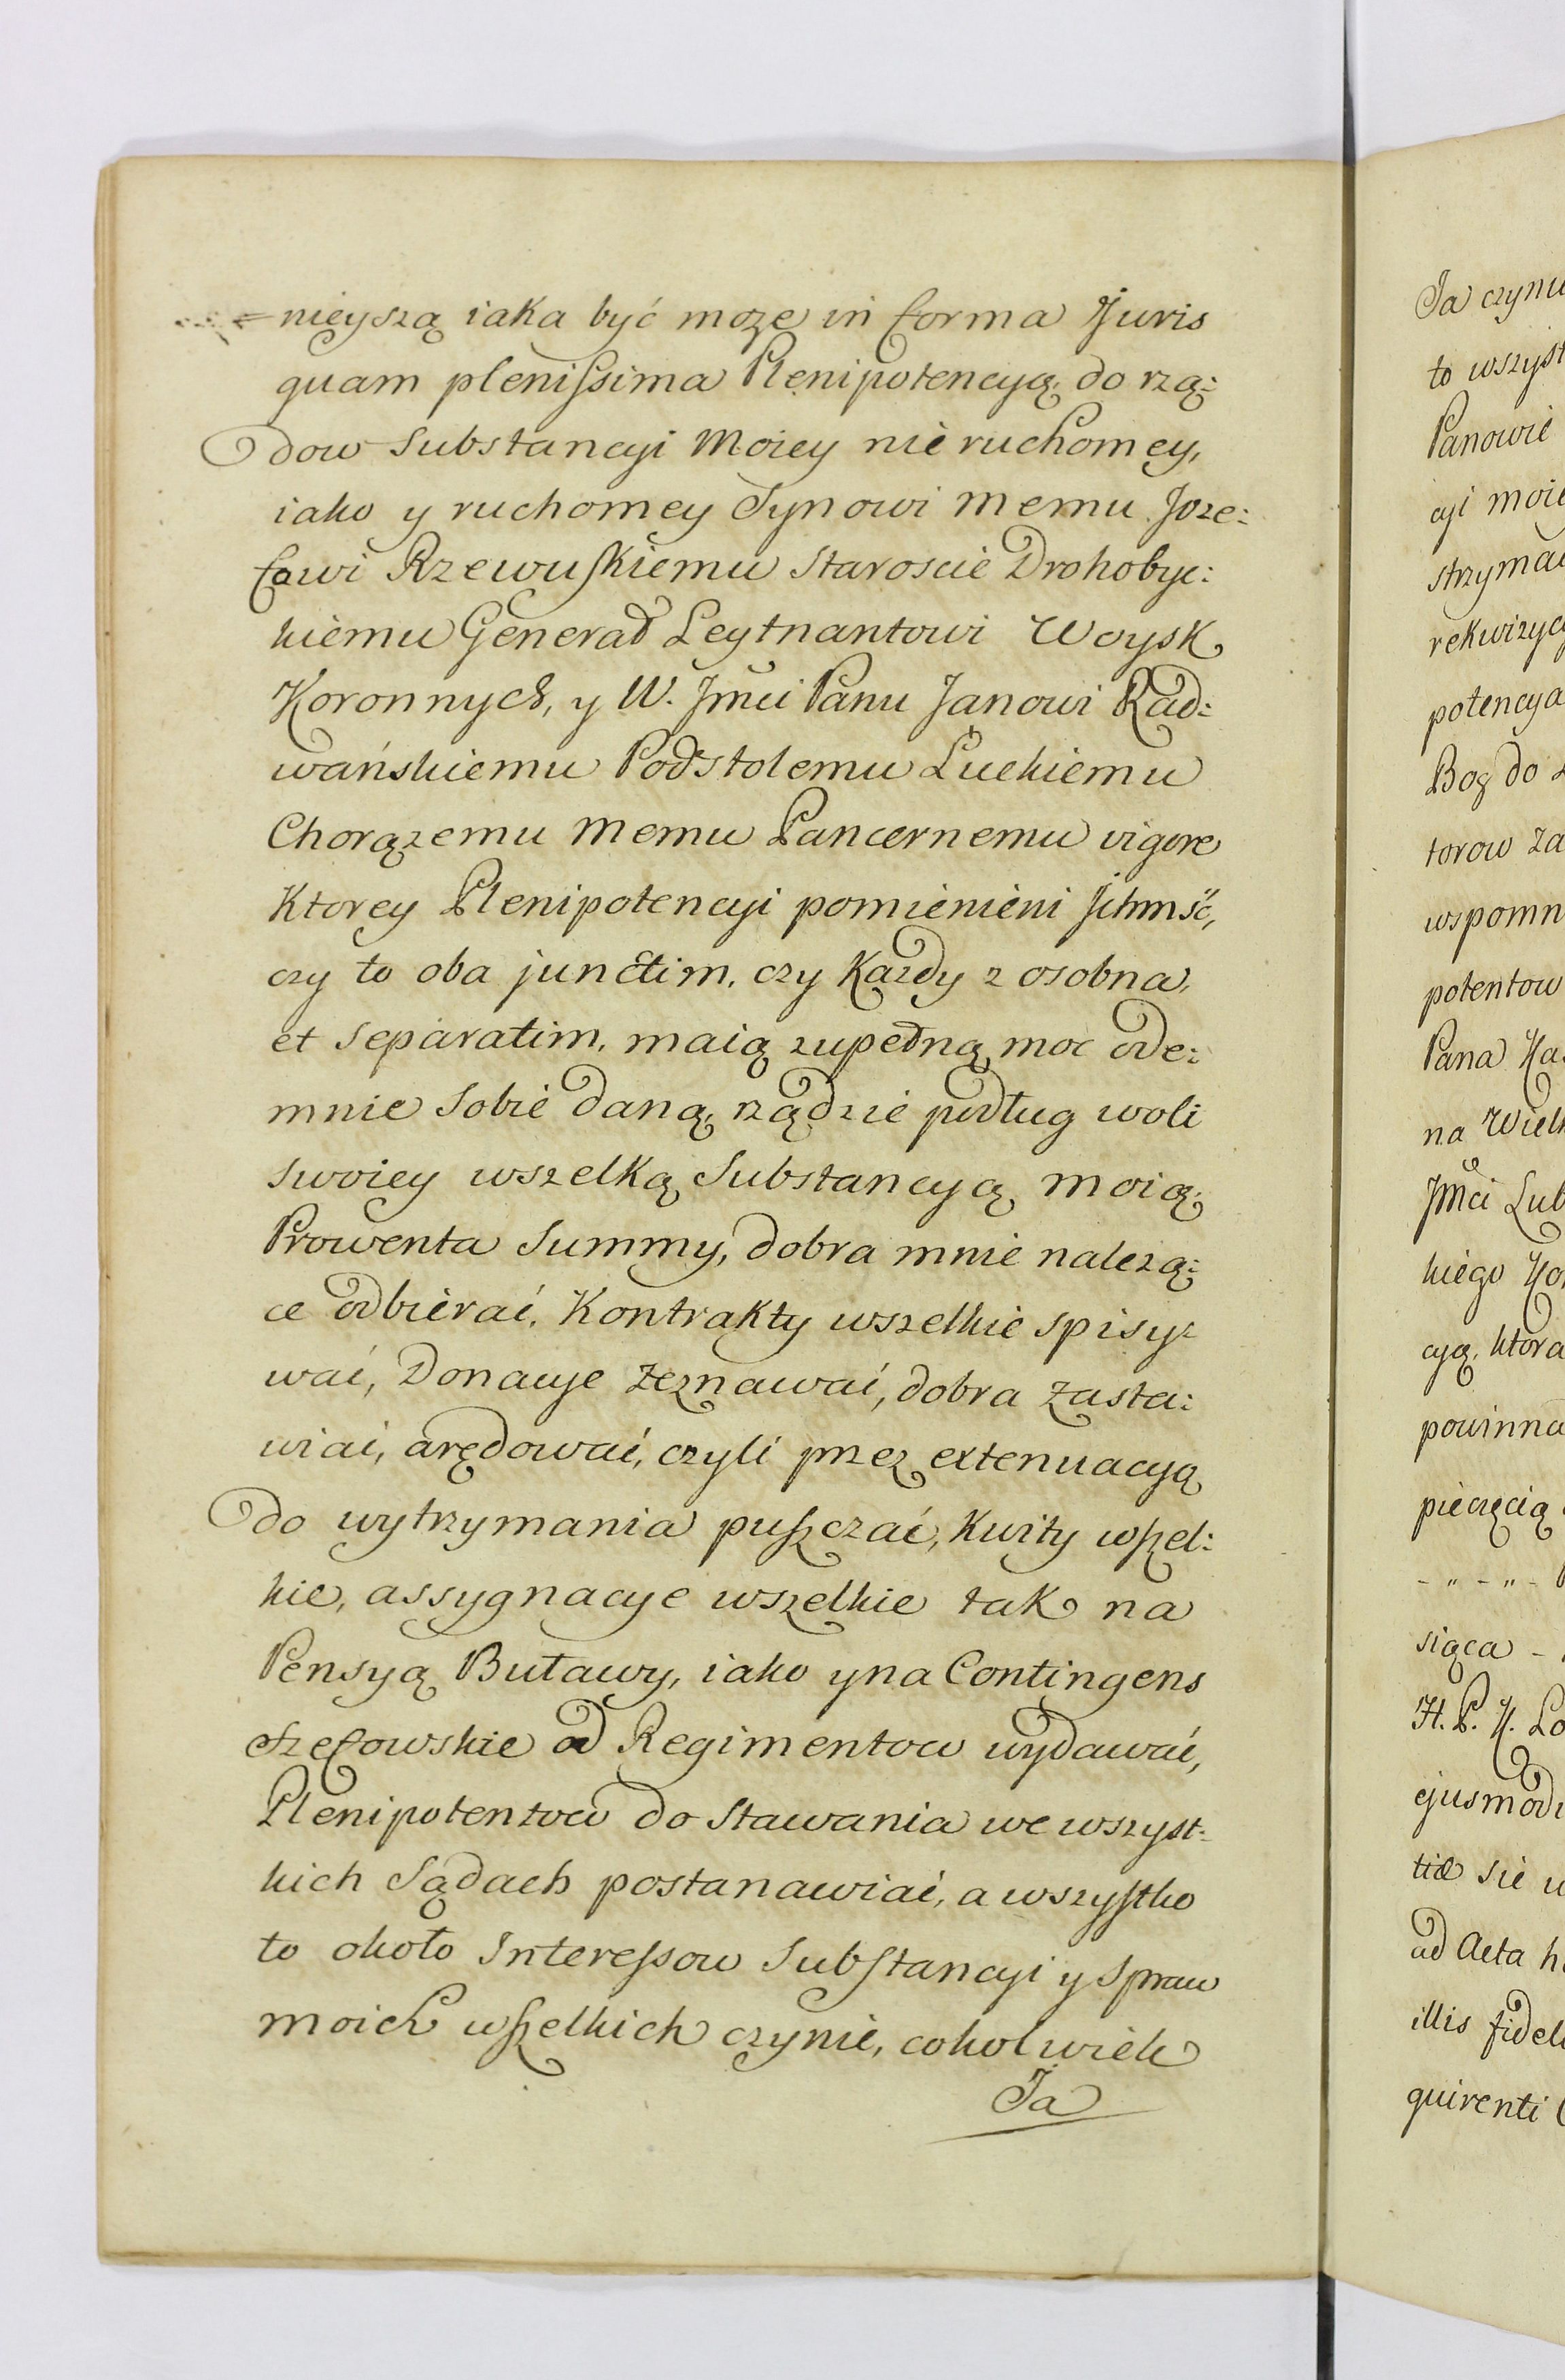 =nieyszą iaka być moze in forma Juris
quam plenissima Plenipotencyą do rzą:
dow Substancyi Moiey nie ruchomey,
iako y ruchomey Synowi memu Joze:
fowi Rzewuskiemu Staroscie Drohobyc:
kiemu Generał Leytnantowi Woysk
Koronnych, y W. Jmci Panu Janowi Rad:
wańskiemu Podstolemu Luckiemu
Chorązemu memu Pancernemu vigore
Ktorey Plenipotencyi pomienieni Jchmść,
czy to oba junctim, czy Kazdy z osobna,
et separatim, maią zupełną moc ode:
mnie sobie daną, rządzić podług woli
swoiey wszelką Substancyą moią,
Prowenta Summy, dobra mnie nalezą:
ce odbierać, Kontrakty wszelkie spisy:
wać, Donacye Zeznawać, dobra Zasta:
wiać, arędować, czyli przez extenuacyą
do wytrzymania puszczać, Kwity wszel:
kie, assygnacye wszelkie tak na
Pensyą Buławy, iako y na Contingens
Szefowskie od Regimentow wydawać,
Plenipotentow do Stawania we wszyst:
kich Sądach postanawiać, a wszystko
to około Interessow Substancyi y Spraw
moich wszelkich czynić, cokolwiek
Ja
Ja czyni
to wszyst
Panowie
cyi moie
strzymać
rekwizyc
potencya
Bog do
torow za
wspomn
potentow
Pana
na Wiel
Jmci Lub
kiego
cyą, ktora
powinna
pieczęcią
- " - " -
siąca -
H. P. K. Lo
ejusmodi
tiæ sie
ad Acta h
illis fidel
quirenti